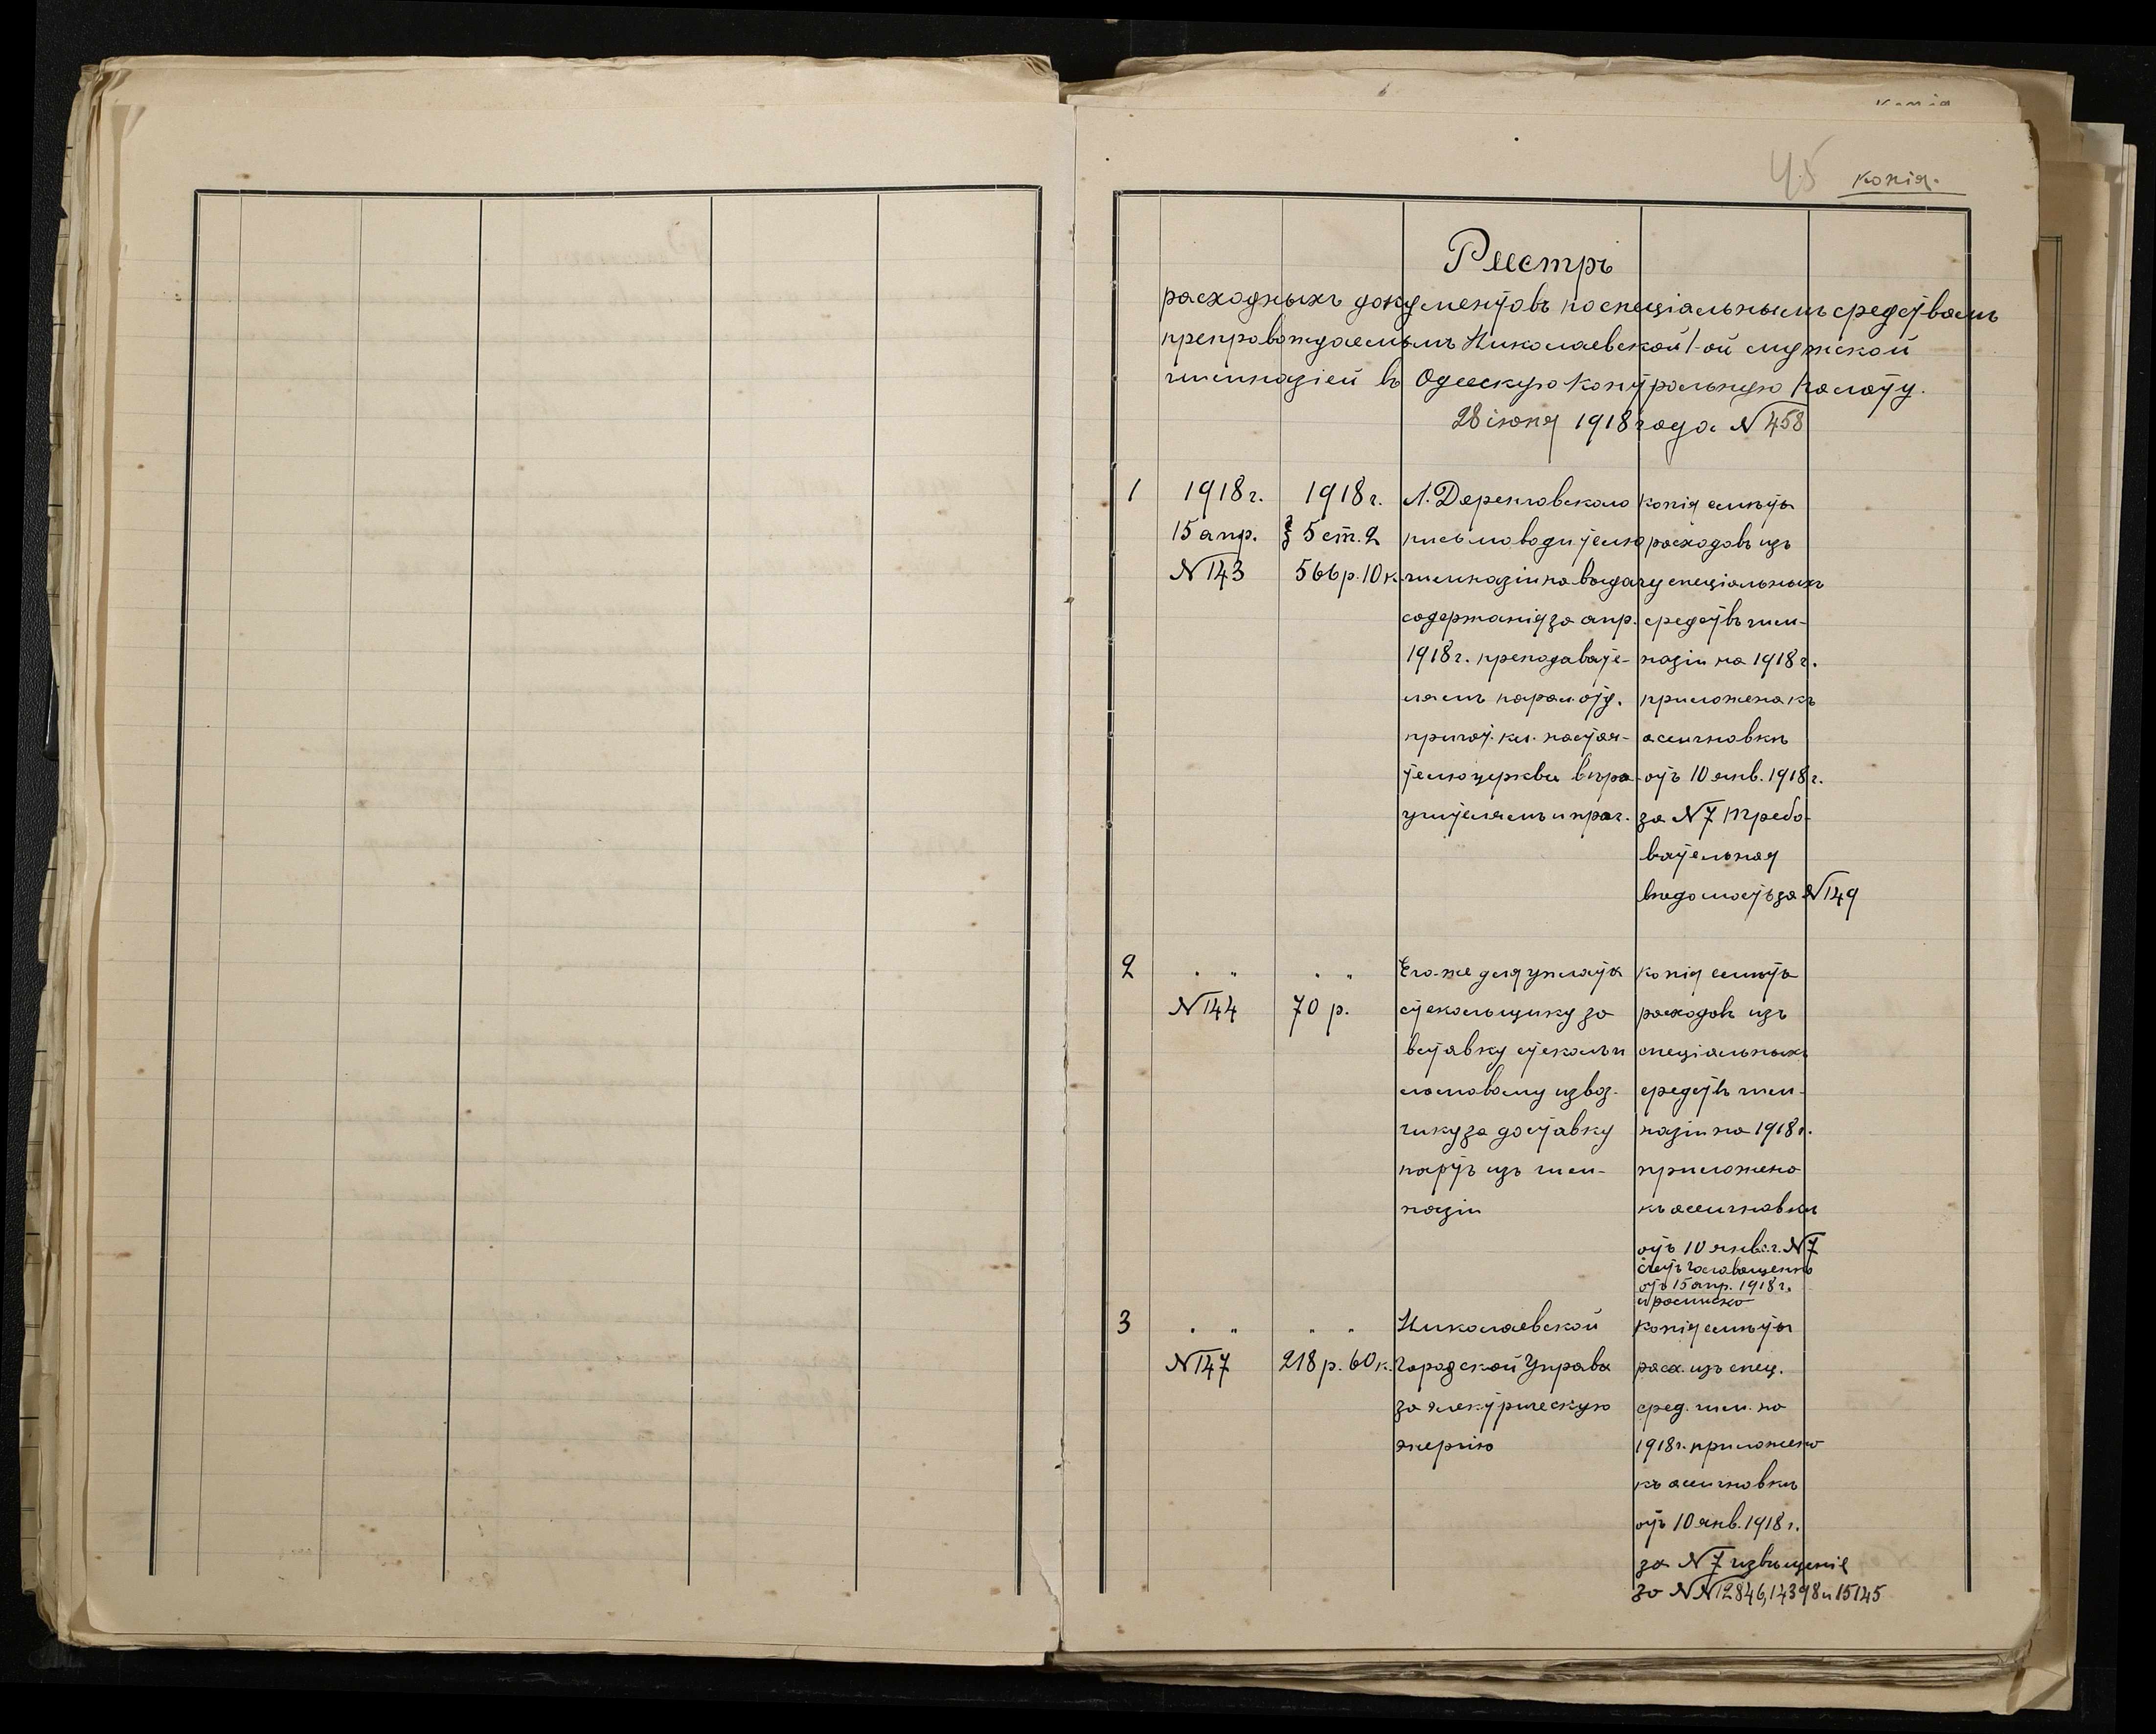 45 копія.
Реестръ
расходныхъ документовъ по спеціальнымъ средствамъ
препровождаемымъ Николаевской 1-ой мужской
гимназіей въ Одесскую Контрольную Палату.
28 іюня 1918 года N 458
1
1918 г.
15 апр.
N 143
1918 г.
§ 5 ст. 2
566 р. 10 к.
письмоводителю
гимназіи на выдачу
содержанія за апр.
1918 г. преподавате-
лямъ парал. отд.
пригот. кл. настоя-
телю церкви
учителямъ и
копія смѣты
расходовъ изъ
спеціальныхъ
средствъ гим-
назіи на 1918 г.
приложена къ
ассигновкѣ
отъ 10 янв. 1918 г.
за N 7 требо-
вательная
вѣдомость за N 149
2
. "
N 144
. "
70 р.
Его-же для уплаты
стекольщику за
вставку стеколъ и
ломовому извоз-
чику за доставку
партъ изъ гим-
назіи
копія смѣты
расходовъ изъ
спеціальныхъ
средствъ гим-
назіи на 1918 г.
приложена
къ ассигновкѣ
отъ 10 янв. с. г. N 7
счетъ
отъ 15 апр. 1918 г.
и росписка
3
. "
N 147
" "
218 р. 60 к.
Николаевской
Городской Управѣ
за электрическую
энергію
копія смѣты
расх. изъ спец.
сред. гим. на
1918 г. приложена
къ ассигновкѣ
отъ 10 янв. 1918 г.
за N 7 извѣщеніе
за NN 12846, 14398 и 15145